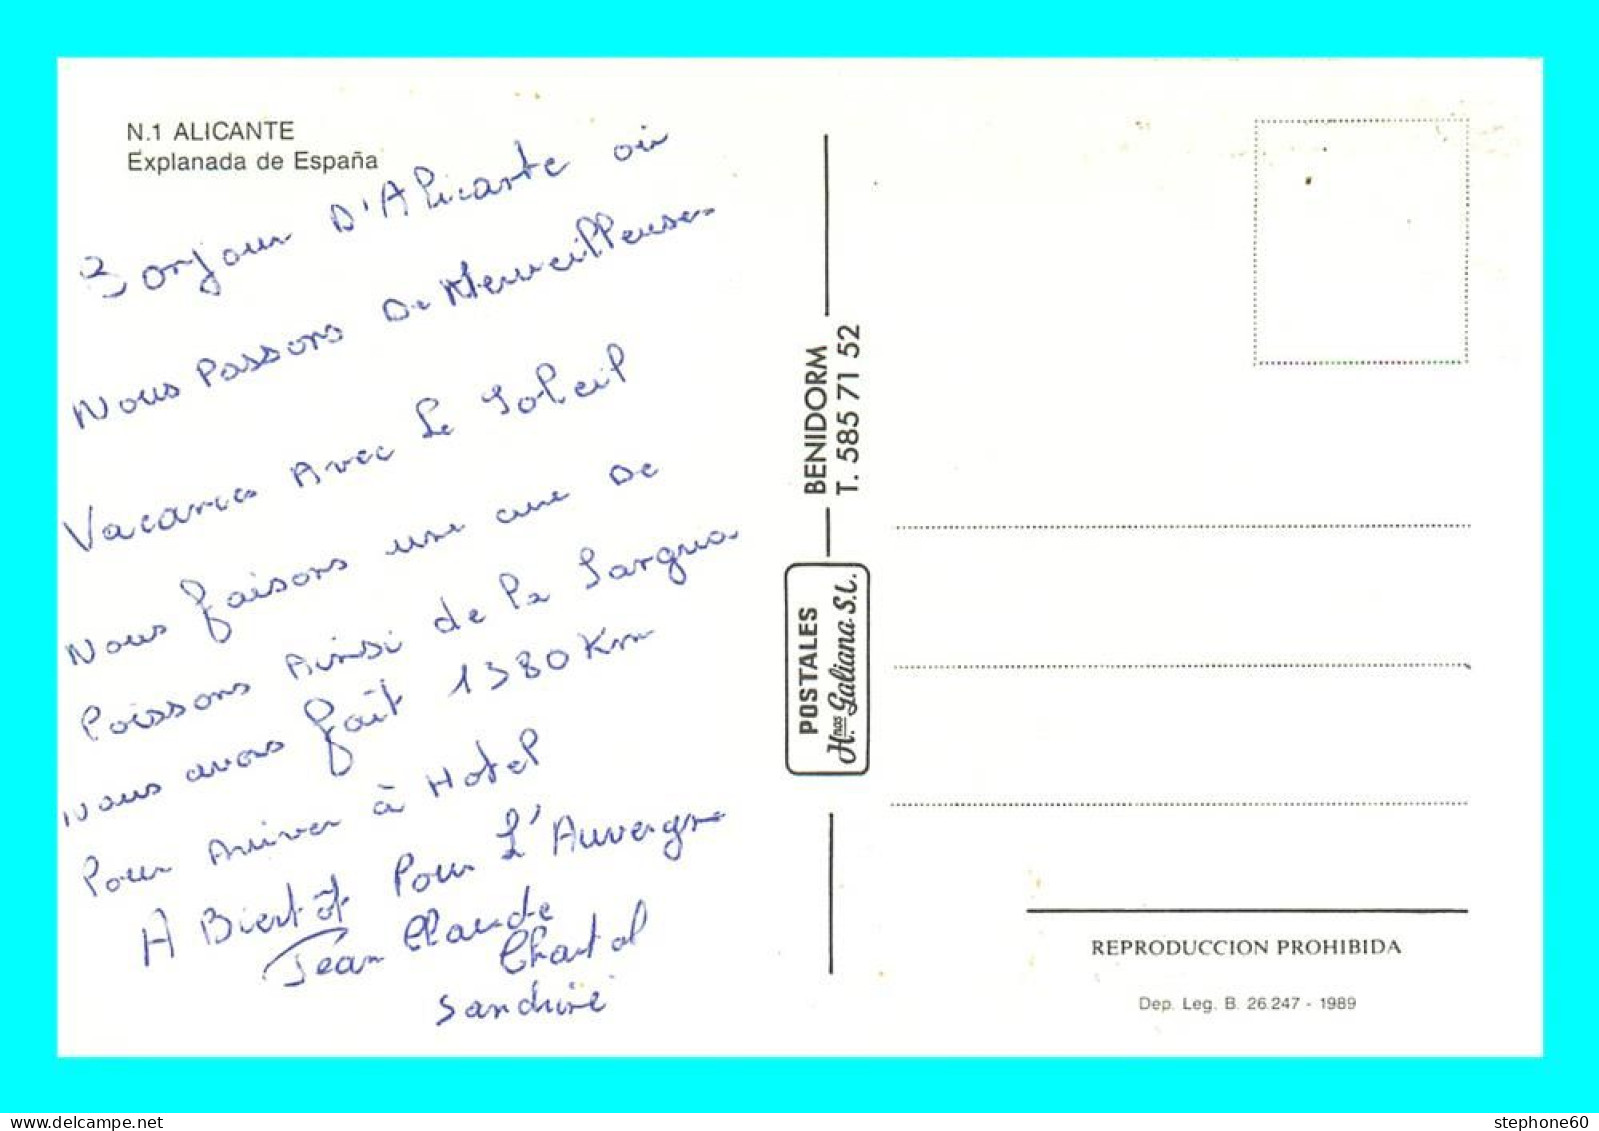 N.1 ALICANTE
Explanada de España
Bonjour D'Alicante où
Nous Passons De Merveilleuses
Vacances Avec Le Soleil
Nous faisons une cure De
Poissons Ainsi de la Sangria
Nous avons fait 1380 Km
Pour Arriver à Hotel
A Bientôt Pour L'Auvergne
Jean Claude
Chantal
Sandrine
BENIDORM
T. 585 71 52
POSTALES
H.nos Galiana S.L.
REPRODUCCION PROHIBIDA
Dep. Leg. B. 26.247 - 1989
stephone60